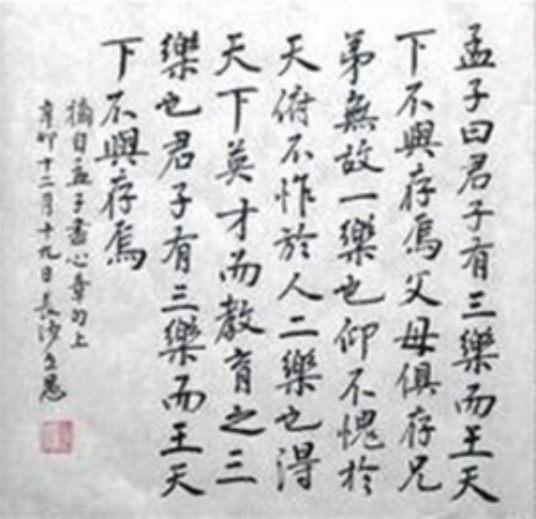 孟子曰君子有三樂而王天
下不與存焉父母俱存兄
弟無故一樂也仰不愧於
天俯不怍於人二樂也得
天下英才而教育之三
樂也君子有三樂而王天
下不與存焉
摘自孟子盡心章句上
辛卯十二月十九日長沙